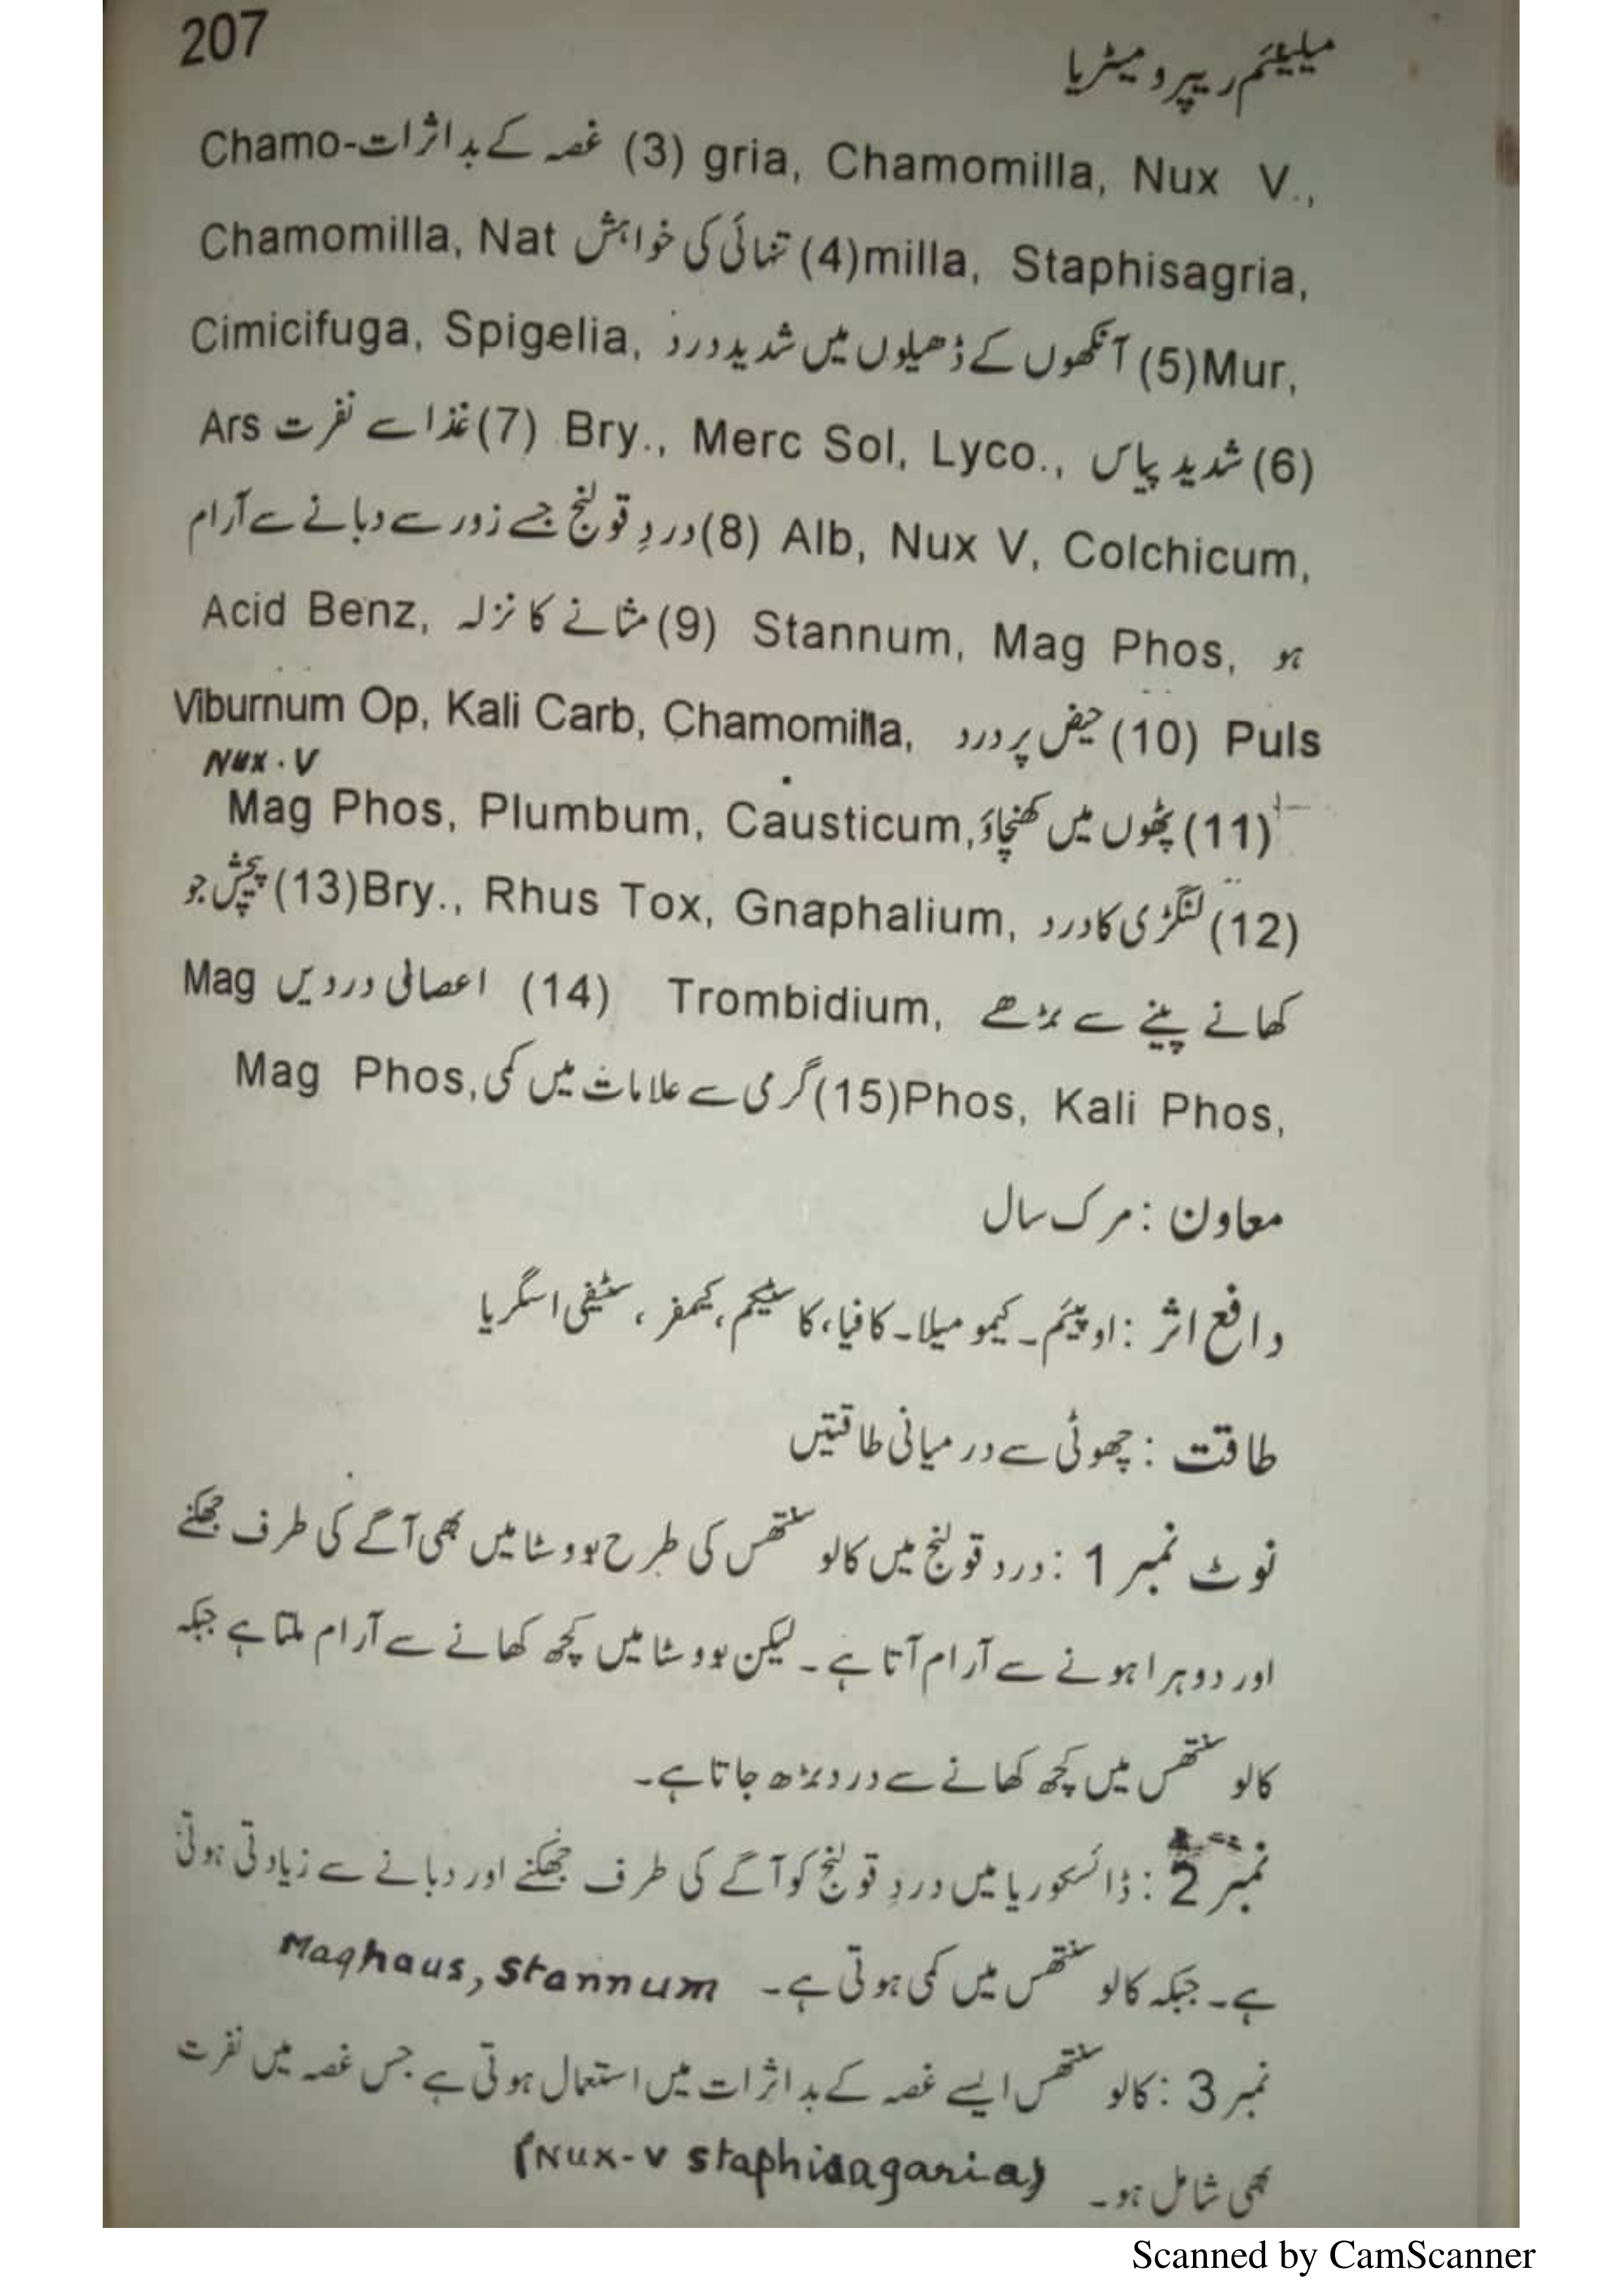 207
میلیئم ریپرو میٹریا
gria, Chamomilla, Nux V., (3) غصہ کے بد اثرات Chamo-
milla, Staphisagria, (4) تنہائی کی خواہش Chamomilla, Nat
Mur, (5) آنکھوں کے ڈھیلوں میں شدید درد Cimicifuga, Spigelia,
(6) شدید پیاس Bry., Merc Sol, Lyco., (7) غذا سے نفرت Ars
Alb, Nux V, Colchicum, (8) دردِ قولنج جسے زور سے دبانے سے آرام
ہو Stannum, Mag Phos, (9) مثانے کا نزلہ Acid Benz,
Puls (10) حیض پر درد Viburnum Op, Kali Carb, Chamomilla,
Nux . V
(11) پٹھوں میں کھنچاؤ Mag Phos, Plumbum, Causticum,
(12) لنگڑی کا درد Bry., Rhus Tox, Gnaphalium, (13) پیچش جو
کھانے پینے سے بڑھے Trombidium, (14) اعصابی دردیں Mag
Phos, Kali Phos, (15) گرمی سے علامات میں کمی Mag Phos,
معاون : مرک سال
دافع اثر : اوپیئم ۔ کیمو میلا ۔ کافیا، کاسٹیکم، کیمفر ، سٹیفی اسگریا
طاقت : چھوٹی سے درمیانی طاقتیں
نوٹ نمبر 1 : درد قولنج میں کالو سنتھس کی طرح بووسٹا میں بھی آگے کی طرف جھکنے
اور دوہرا ہونے سے آرام آتا ہے ۔ لیکن بووسٹا میں کچھ کھانے سے آرام ملتا ہے جبکہ
کالو سنتھس میں کچھ کھانے سے درد بڑھ جاتا ہے۔
نمبر 2 : ڈائسکوریا میں دردِ قولنج کو آگے کی طرف جھکنے اور دبانے سے زیادتی ہوتی
ہے ۔ جبکہ کالو سنتھس میں کمی ہوتی ہے ۔ Maghaus, Stannum
نمبر 3 : کالو سنتھس ایسے غصہ کے بد اثرات میں استعمال ہوتی ہے جس غصہ میں نفرت
بھی شامل ہو ۔ (Nux-v staphisagaria)
Scanned by CamScanner